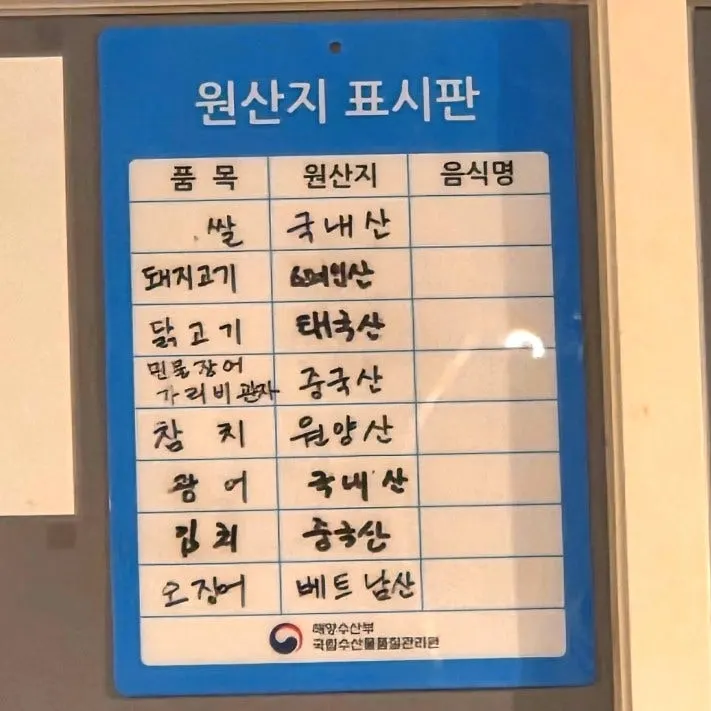 원산지 표시판
품 목 원산지 음식명
쌀 국내산
돼지고기 스페인산
닭고기 태국산
민물장어
가리비관자 중국산
참 치 원양산
광 어 국내산
중국산
오징어 베트남산
해양수산부
국립수산물품질관리원